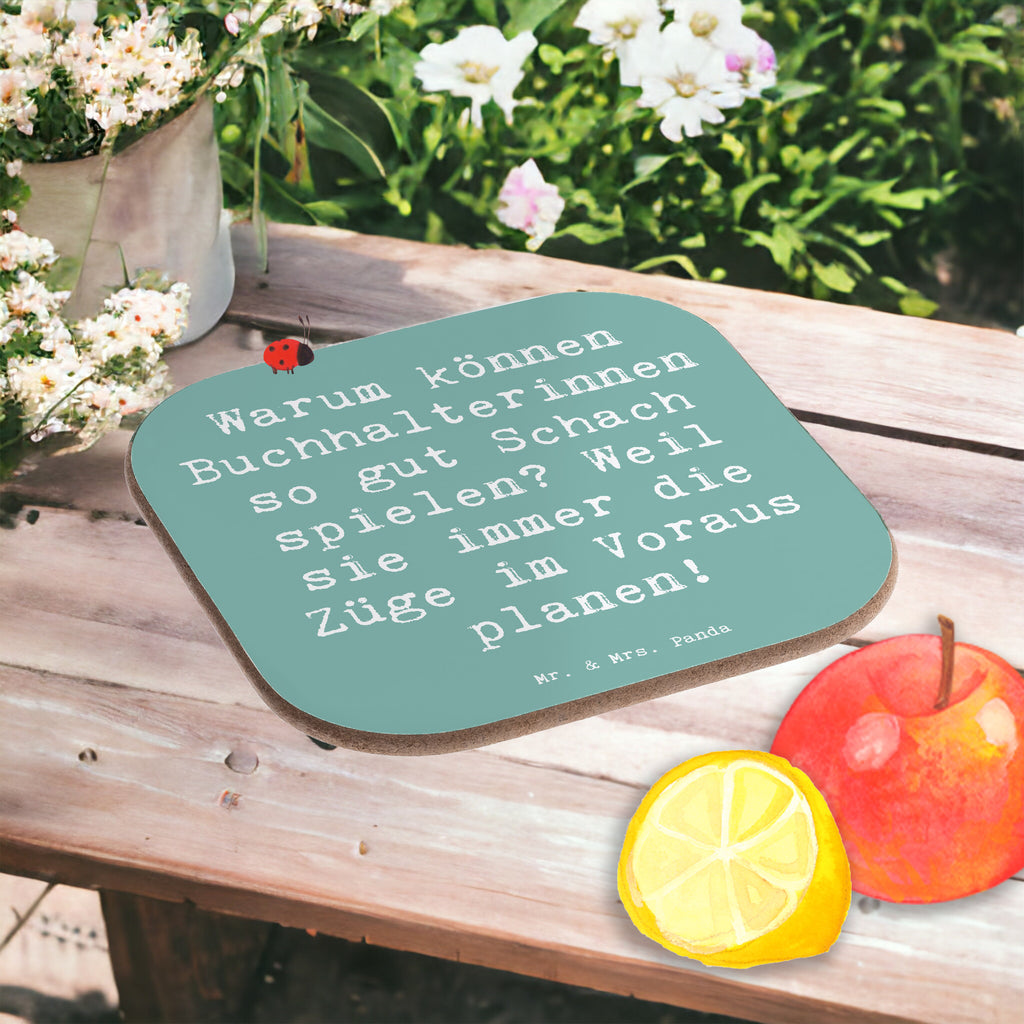 Warum können
Buchhalterinnen
so gut Schach
spielen? Weil
sie immer die
Züge im Voraus
planen!
Mr. & Mrs. Panda